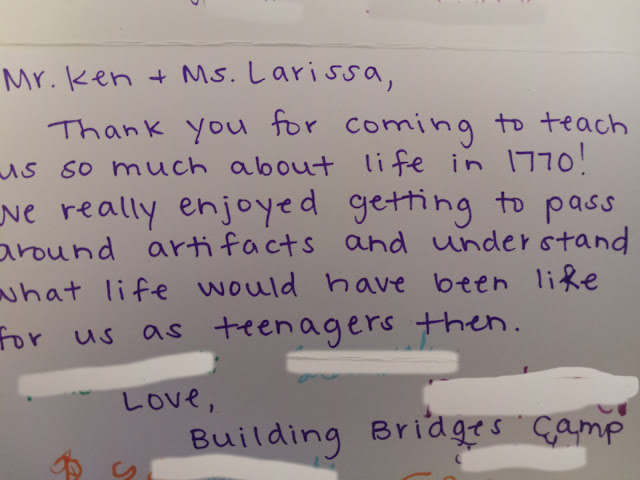 Mr. Ken + Ms. Larissa,
Thank you for coming to teach
us so much about life in 1770!
We really enjoyed getting to pass
around artifacts and understand
what life would have been like
for us as teenagers then.
Love,
Building Bridges Camp